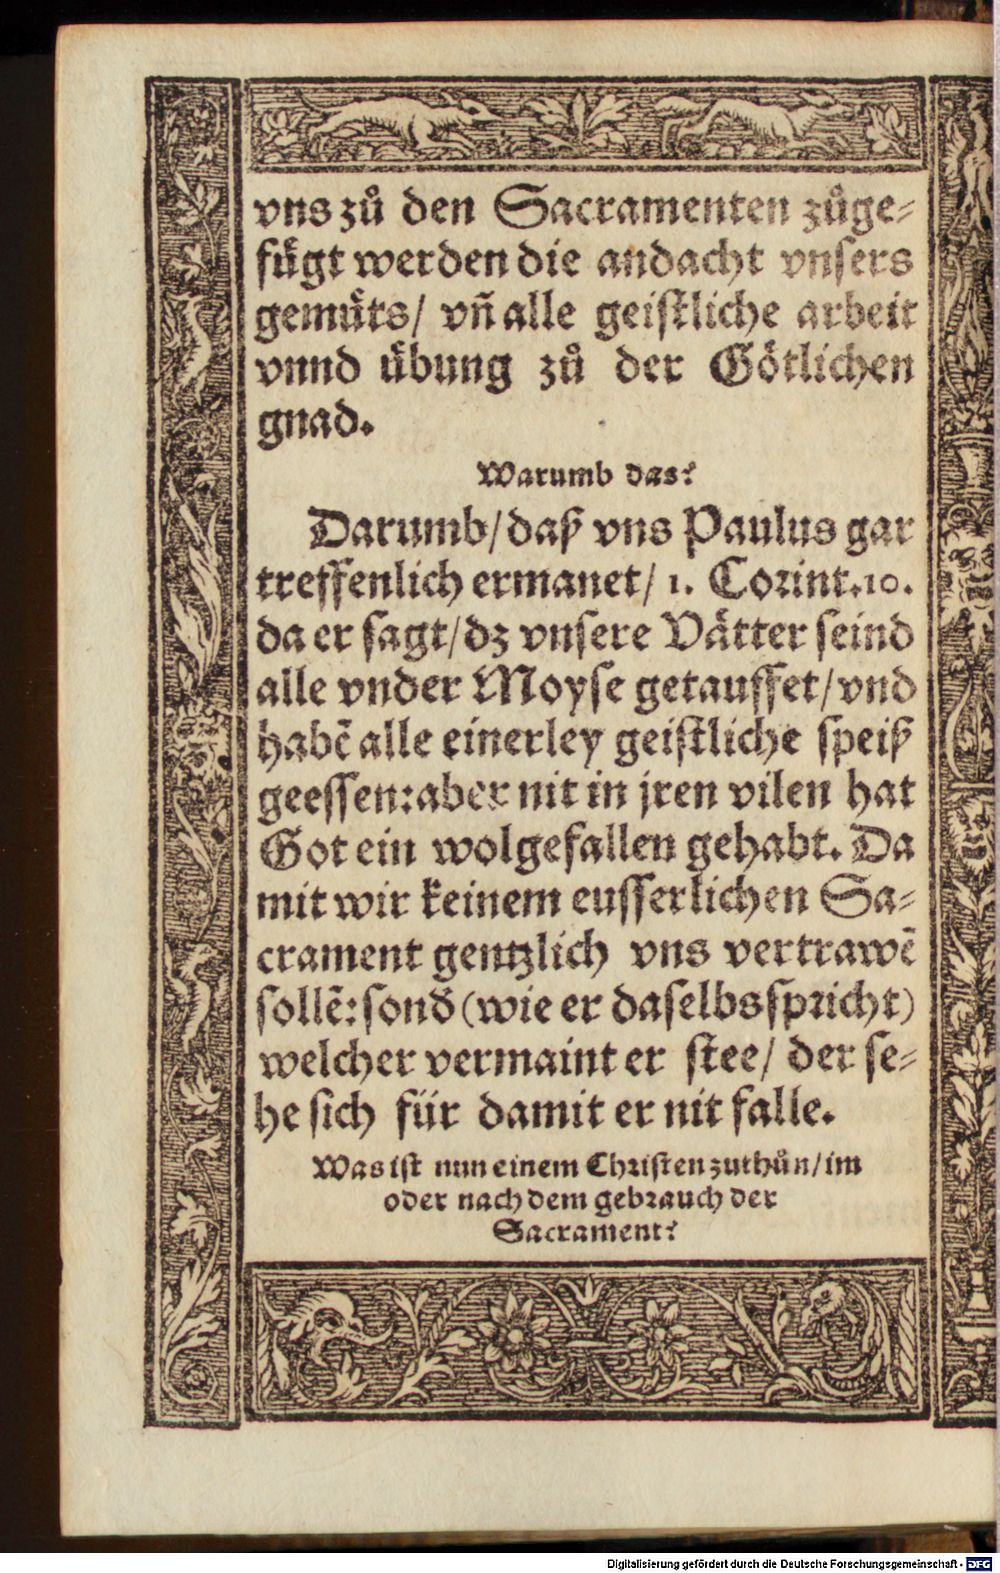 vns zů den Sacramenten zůge⸗
fügt werden die andacht vnsers
gemüts/ vñ alle geistliche arbeit
vnnd übung zů der Götlichen
gnad.
Warumb das?
Darumb/ daß vns Paulus gar
treffenlich ermanet/ 1. Corint.10.
da er sagt/ dz vnsere Vätter seind
alle vnder Moyse getauffet/ vnd
habẽ alle einerley geistliche speiß
geessen: aber nit in jren vilen hat
Got ein wolgefallen gehabt. Da
mit wir keinem eusserlichen Sa⸗
crament gentzlich vns vertrawẽ
sollẽ: sond̃ (wie er daselbs spricht)
welcher vermaint er stee/ der se⸗
he sich für damit er nit falle.
Was ist nun einem Christen zuthůn/ im
oder nach dem gebrauch der
Sacrament?
Digitalisierung gefördert durch die Deutsche Forschungsgemeinschaft - DFG